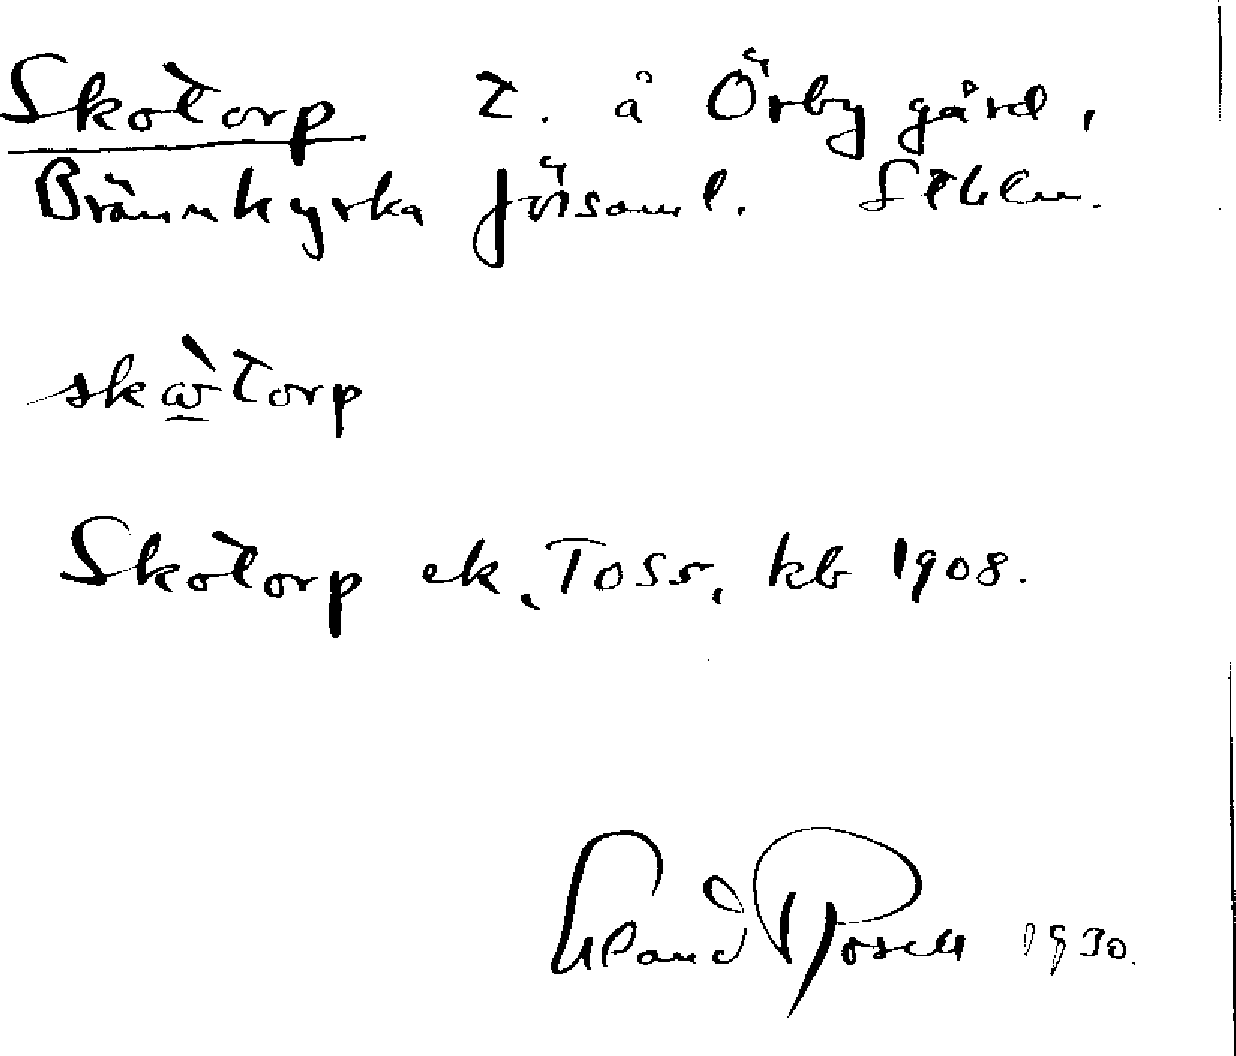 Skotorp t. å Örby gård,
Brännkyrka förs​aml. Sthlm.
skὼ̲torp
Skotorp ek, Toss, kb 1908.
1930.